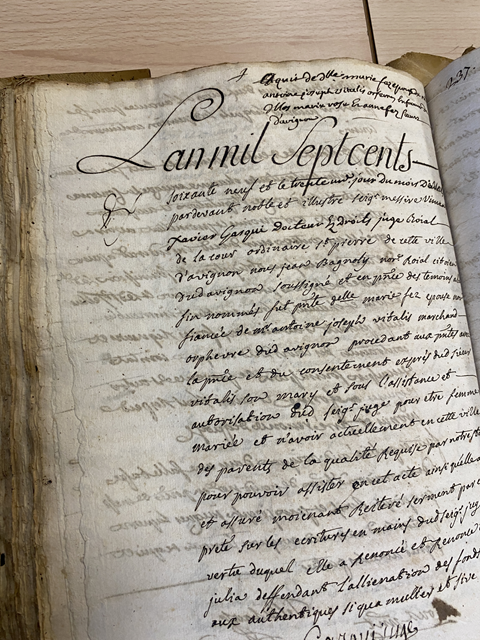 L'aquis de dlle marie fez epouse
antoine joseph vitalis orfevre en faveur
dlles marie rose et anne fez sœurs
d'avignon
137
Lan mil Septcents
soixante neuf et le trente un. jour du mois D
pardevant noble et illustre seigr messire
Xavier Gasqui docteur Ez droits juge Roial
de la cour ordinaire st pierre de cette ville
d'avignon nous jean Bagnoly nore Roial citoien
Dud avignon soussigné et en pnce des temoins a
fin nommés fut pnte delle marie fez epouse non
fiancée de mr antoine joseph vitalis marchand
orphevre dud avignon procedant aux pntes avec
la pnce et du consentement exprès dud sieur
vitalis son mary et sous l'assistance et
authorisation dud seigr juge pour etre femme
mariée et n'avoir actuellement en cette ville
des parents de la qualité Requise par notre st
pour pouvoir assister en cet acte ainsy qu'elle a
et assuré moienant Reitéré serment par e
preté sur les ecritures en mains dud seigr juge
vertu duquel elle a renoncé et renonce
julia deffendant l'allienation des fonds
aux authentiques si qua mulier et sive